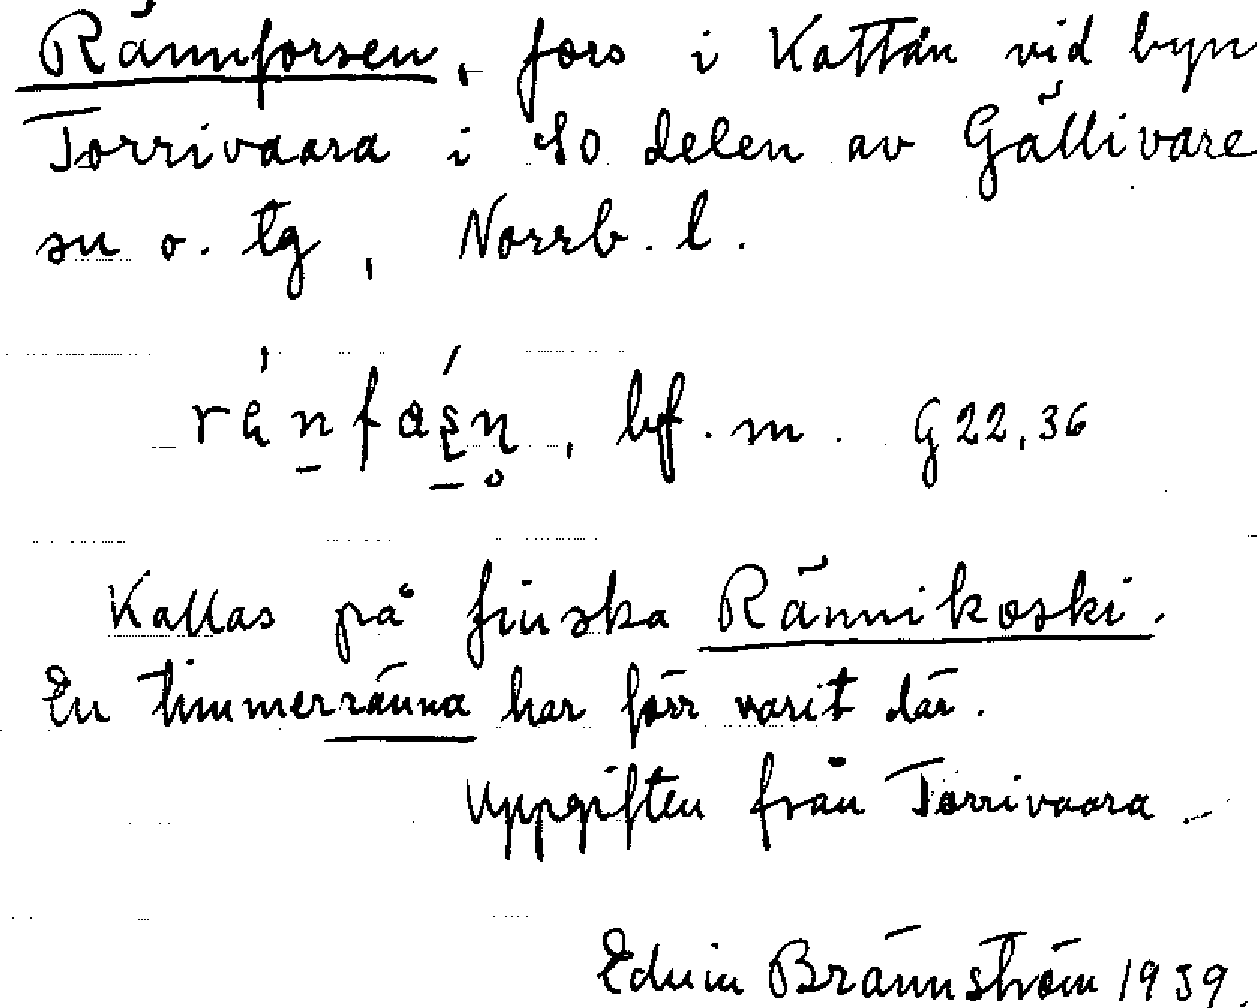 Rännforsen, fors i Kattån vid byn
Torrivaara i SO delen av Gällivare
sn o. tg, Norrb. l.
bf. m. G 22,36
Kallas på finska Rännikoski.
En timmerränna har förr varit där.
Uppgiften från Torrivaara
Edvin Brännström 1939.